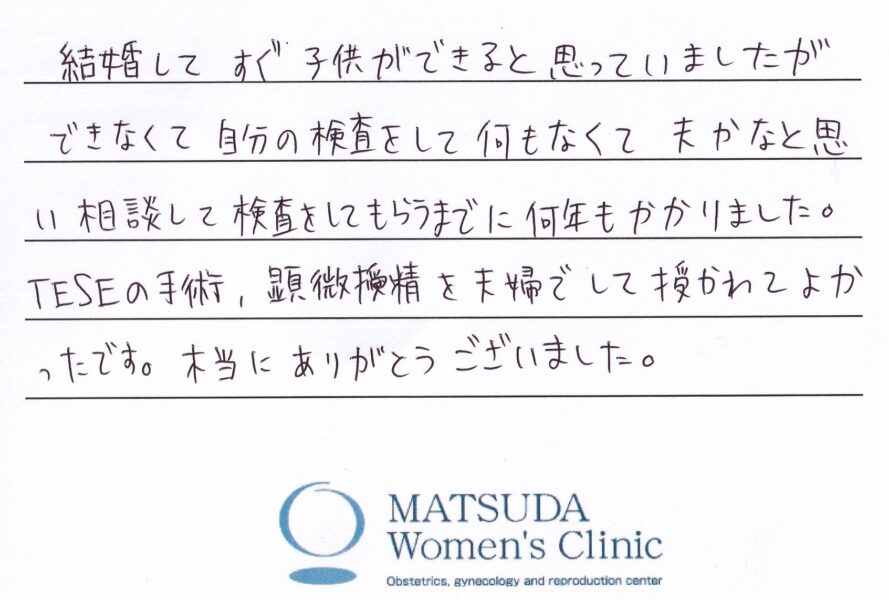 結婚して すぐ 子供ができると 思っていましたが
できなくて 自分の検査をして 何もなくて 夫かなと思
い 相談して 検査をしてもらうまでに 何年もかかりました。
TESEの手術, 顕微授精を夫婦でして授かれてよか
ったです。本当に ありがとう ございました。
MATSUDA
Women's Clinic
Obstetrics, gynecology and reproduction center